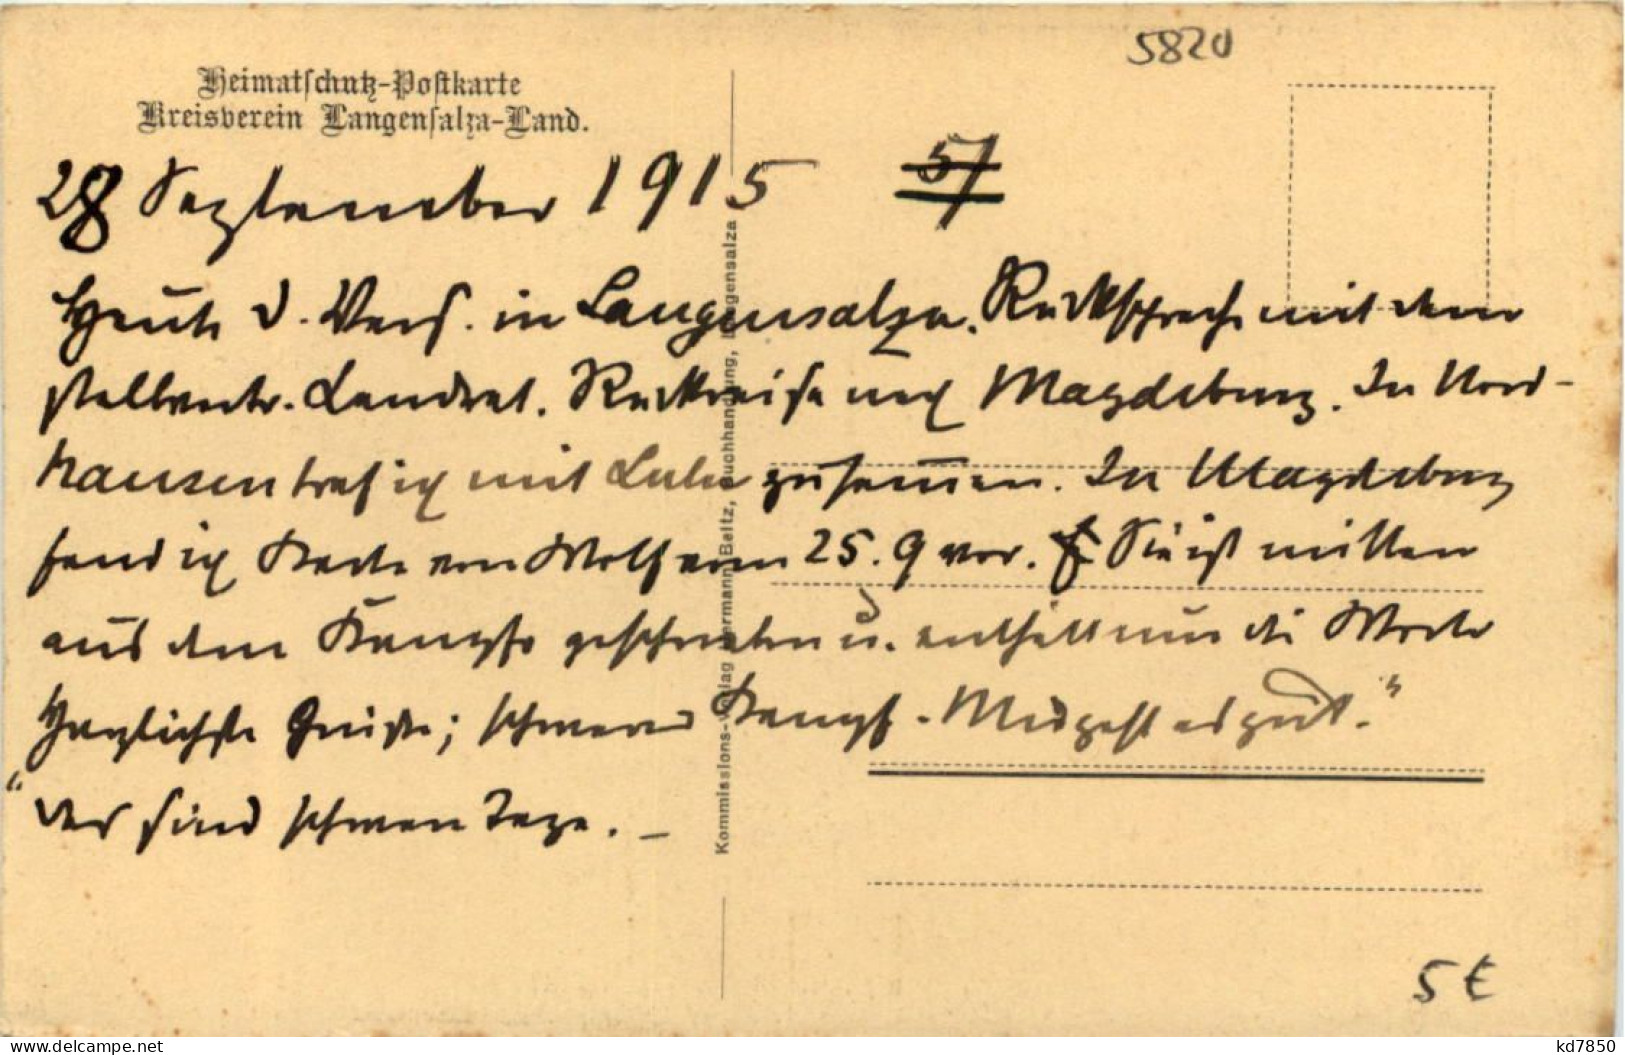 5820
Heimatschutz-Postkarte
Kreisverein Langensalza-Land.
28 September 1915
57
Heute d. Vers. in Langensalza. Rücksprache mit dem
stellvertr. Landrat. Rückreise nach Magdeburg. In Nord-
hausen traf ich mit Lulu zusammen. In Magdeburg
fand ich Karte von Wolf vom 25. 9 vor. Sie ist mitten
aus dem Kampfe geschrieben u. enthält nur die Worte
Herzlichste Grüße; schwerer Kampf. Mir geht es gut."
"Das sind schwere Tage. –
Kommissions-Verlag Hermann Beltz, Buchhandlung, Langensalza
5 €
www.delcampe.net
kd7850